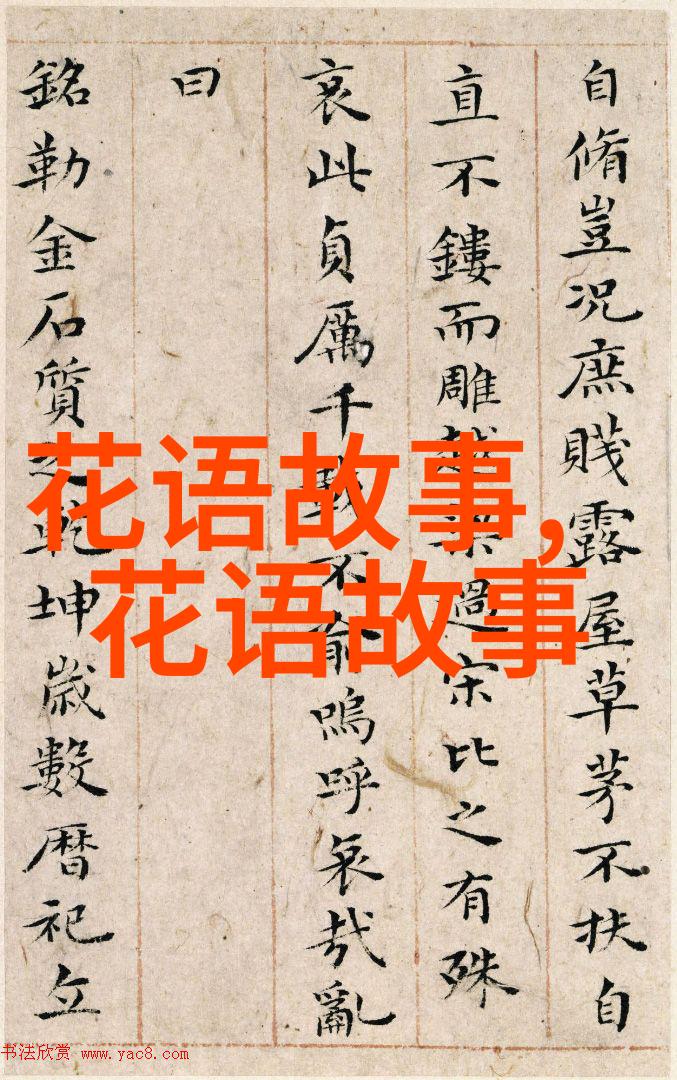 自脩豈況庶賤露屋草茅不扶自
直不鏤而雕越梁過宋比之有殊
哀此貞厲千載不渝嗚呼哀哉亂
曰
銘勒金石質之乾坤歲數暦祀立
花语故事,
花语故事
书法欣赏 www.yac8.com